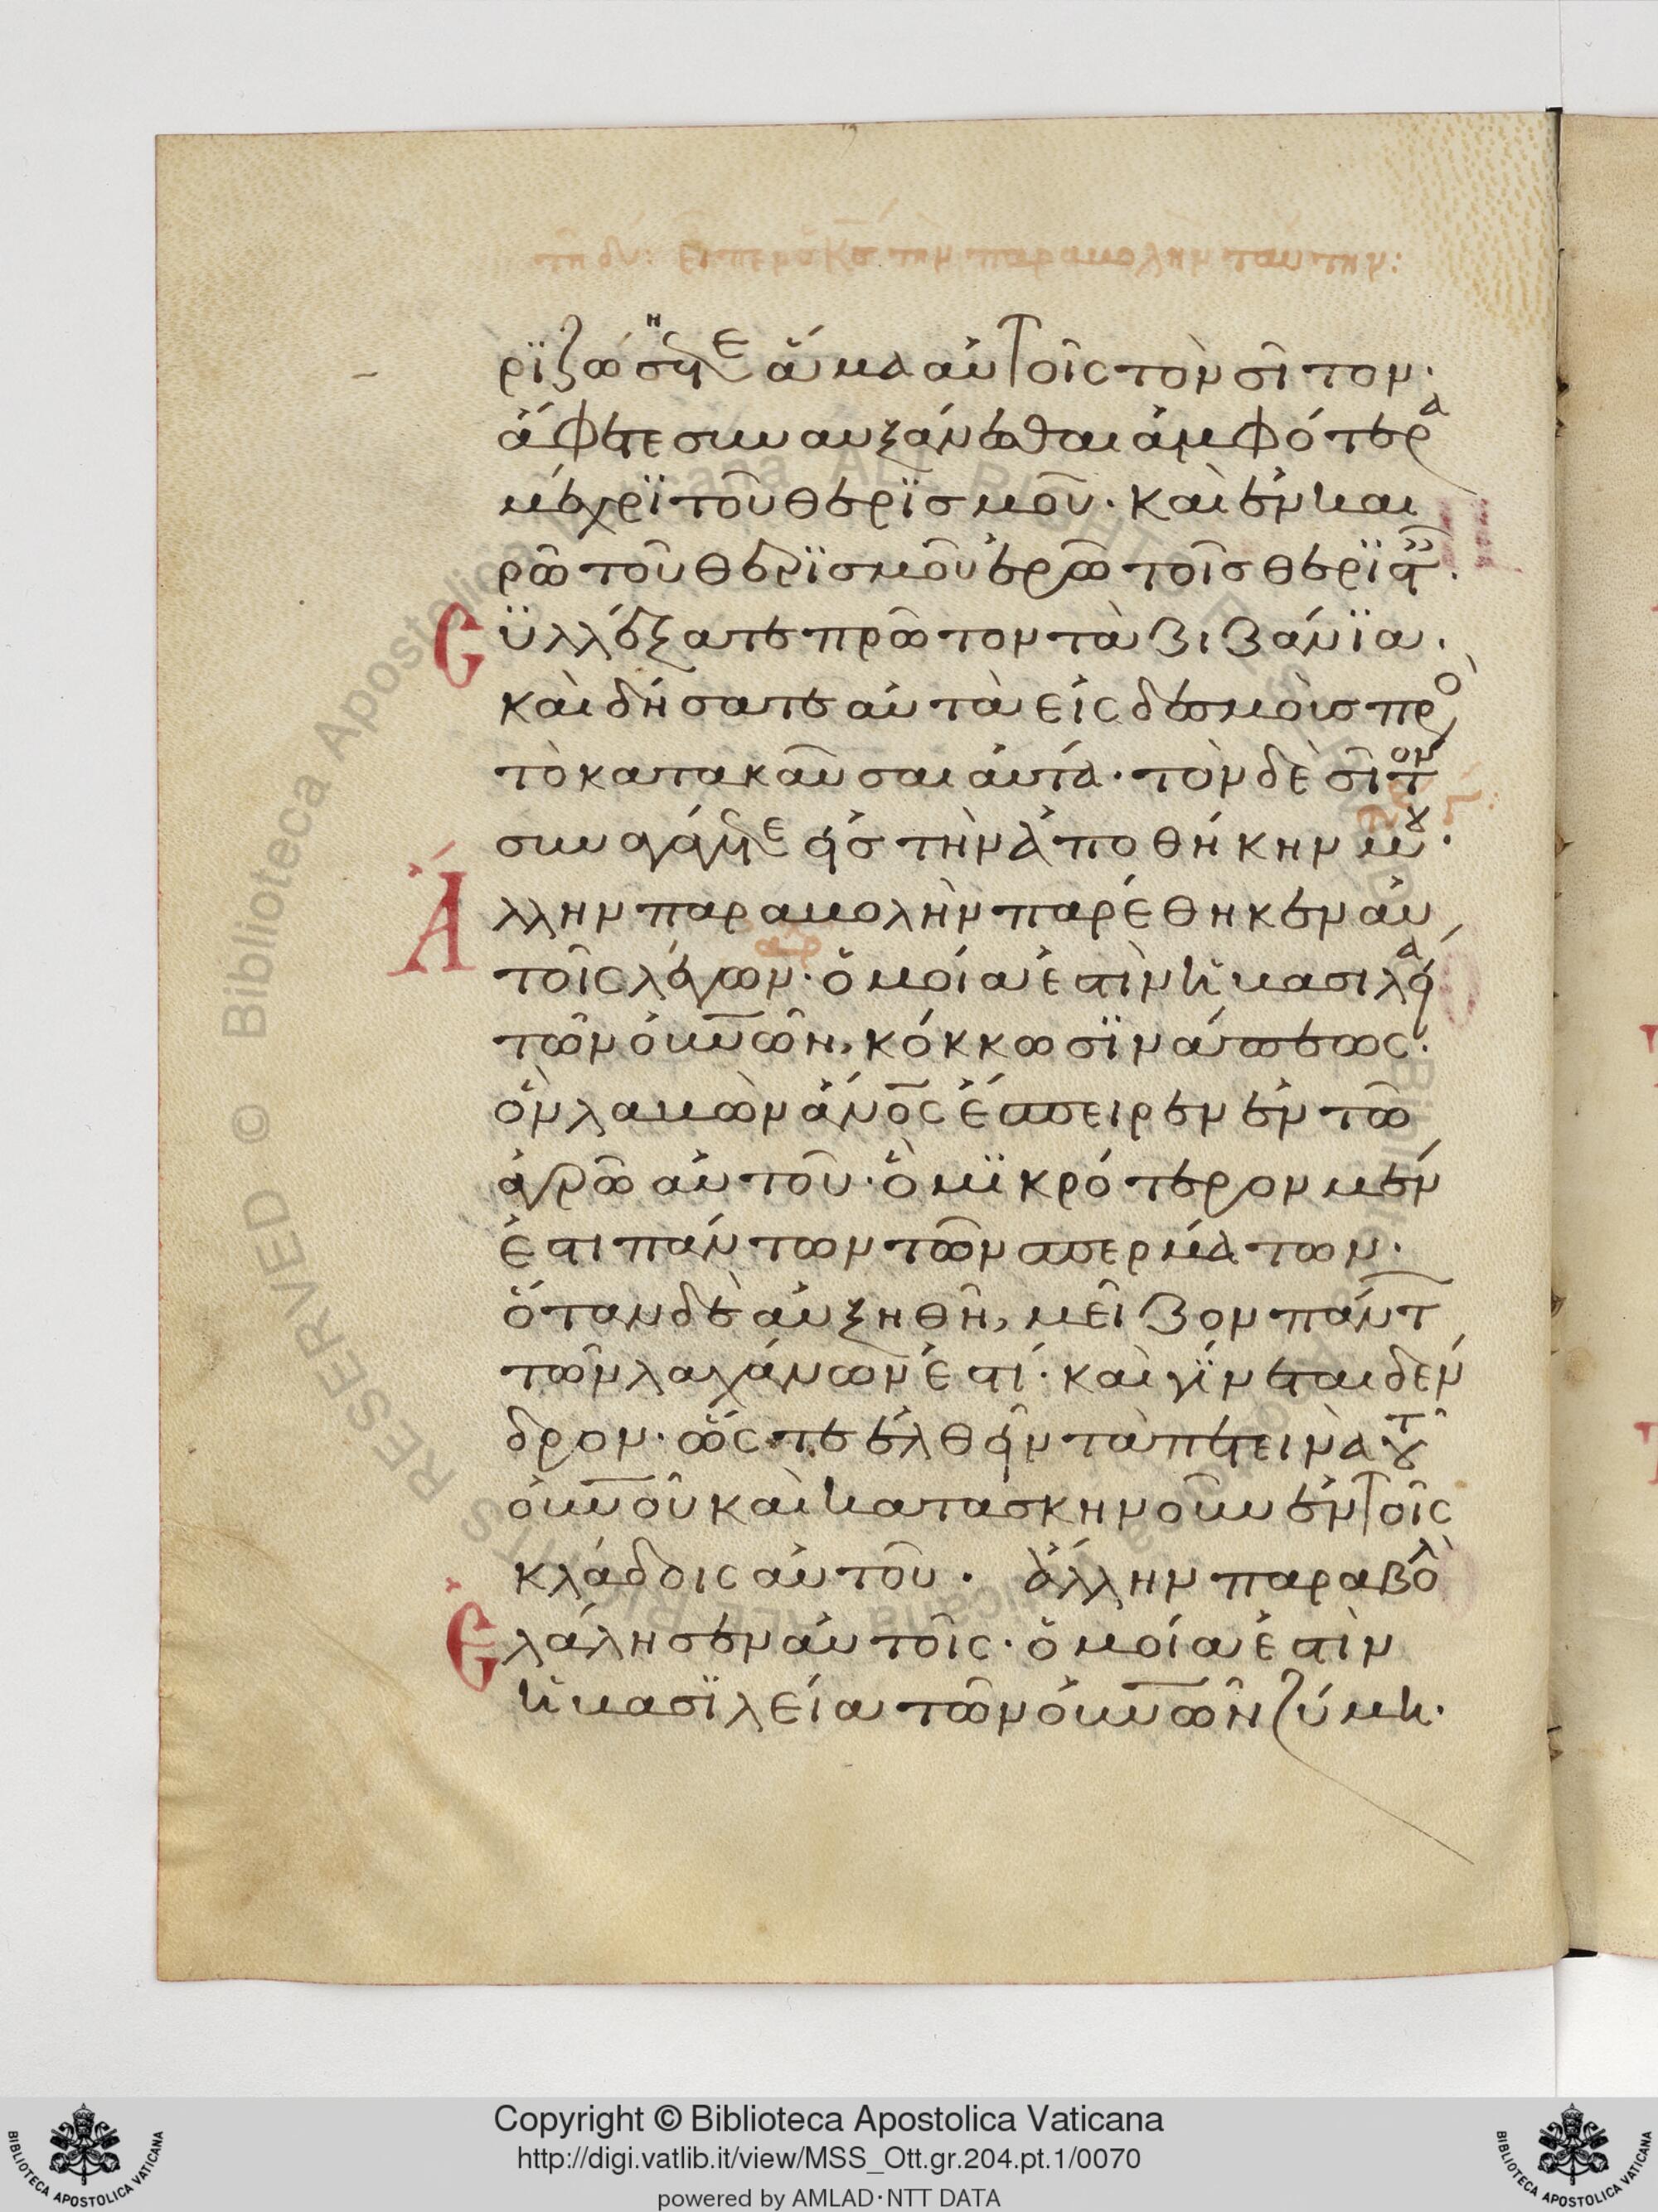 τῆ δυ: εἶπεν ὁ κσ τὴν παραβολὴν ταύτην:
ρϊζώσητε ἅμα αὐτοῖς τὸν σῖτον·
ἄφετε συναυξάνεσθαι ἀμφότερα
μέχρϊ τοῦ θερϊσμοῦ· καὶ ἐν και
ρῶ τοῦ θερϊσμοῦ ἐρῶ τοῖσ θερϊστ·
Cϋλλέξατε πρῶτον τὰ ζιζάνϊα·
καὶ δήσατε αὐτὰ εἰς δεσμὰσ πρὸ
τὸ κατακαῦσαι αὐτά· τὸν δὲ σῖτον
συναγάγετε εἰσ τὴν ἀποθήκην μου·
Ἄλλην παραβολὴν παρέθηκεν αὐ
τοῖς λέγων· ὁμοία ἐστὶν ἡ βασιλεία
τῶν οὐνῶν, κόκκω σϊνάπεως·
ὃν λαβὼν ἄνος ἔσπειρεν ἐν τῶ
ἀγρῶ αὐτοῦ· ὃ μϊκρότερον μέν
ἐστι πάντων τῶν σπερμάτων·
ὅταν δὲ αὐξηθῆ, μεῖζον πάντ
τῶν λαχάνων ἐστί· καὶ γίνεται δέν
δρον· ὥς τε ἐλθεῖν τὰ πετεινὰ τοῦ
οὐνοῦ καὶ κατασκηνοῦν ἐν τοῖς
κλάδοις αὐτοῦ· ἄλλην παραβολ
Ἐλάλησεν αὐτοῖς· ὁμοία ἐστὶν
ἡ βασϊλεία τῶν οὐνῶν ζύμη·
Copyright © Biblioteca Apostolica Vaticana
http://digi.vatlib.it/view/MSS_Ott.gr.204.pt.1/0070
powered by AMLAD·NTT DATA